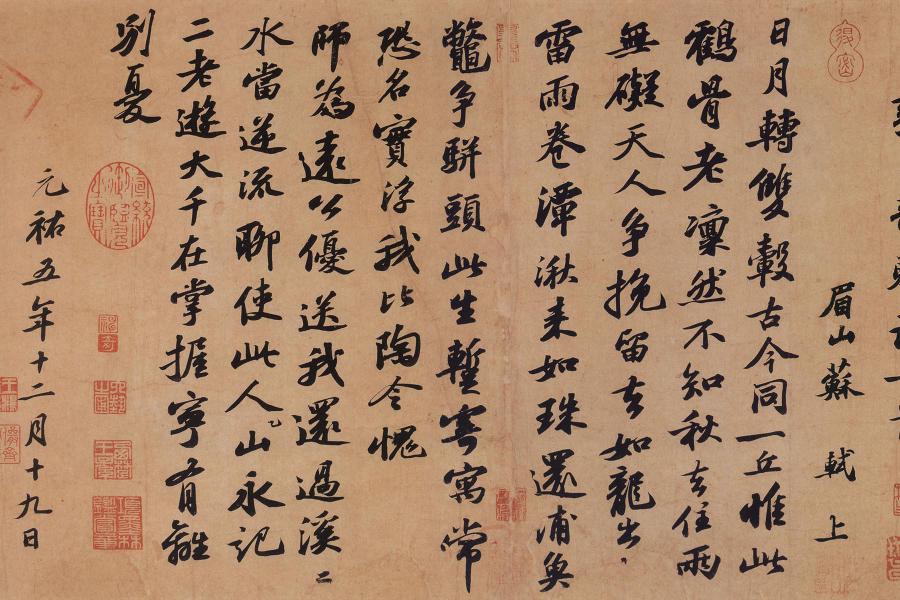 眉山蘇軾上
日月轉雙轂古今同一丘惟此
鶴骨老凜然不知秋去住兩
無礙天人爭挽留去如龍出
雷雨卷潭湫来如珠還浦魚
鼈爭駢頭此生暫寄寓常
恐名實浮我比陶令愧
師為遠公優送我還過溪〻
水當逆流聊使此人山永記
二老遊大千在掌握寧有離
別憂
元祐五年十二月十九日